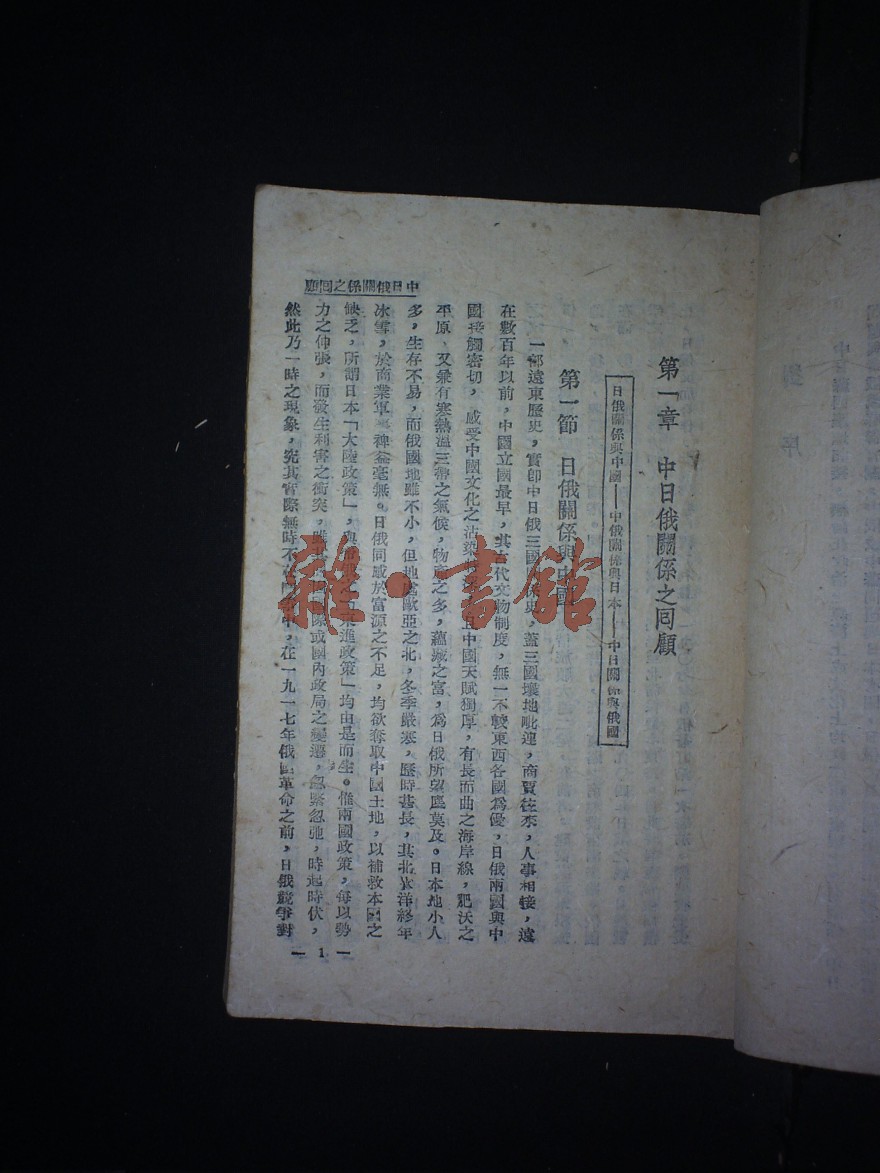 第一章　中日俄關係之回顧
日俄關係與中國——中俄關係與日本——中日關係與俄國
第一節　日俄關係與中國
一部遠東歷史，實卽中日俄三國歷史，蓋三國壤地毗連，商賈往來，人事相接，遠
在數百年以前，中國立國最早，其文物制度，無一不較東西各國爲優，日俄兩國與中
國接觸密切，感受中國文化之沾染，且中國天賦獨厚，有長而曲之海岸線，肥沃之
平原，又兼有寒熱溫三帶之氣候，物產之多，蘊藏之富，爲日俄所望塵莫及。日本地小人
多，生存不易，而俄國地雖不小，但地處歐亞之北，冬季嚴寒，歷時甚長，其北冰洋終年
冰雪，於商業軍事裨益毫無。日俄同感於富源之不足，均欲奪取中國土地，以補救本國之
缺乏，所謂日本「大陸政策」，與俄國之「東進政策」均由是而生。惟兩國政策，每以勢
力之伸張，而發生利害之衝突，國際或國內政局之變遷，忽緊忽弛，時起時伏，
然此乃一時之現象，究其實際無時不在鬥爭中，在一九一七年俄國革命之前，日俄競爭對
中日俄關係之回顧
1
雜·書館
序